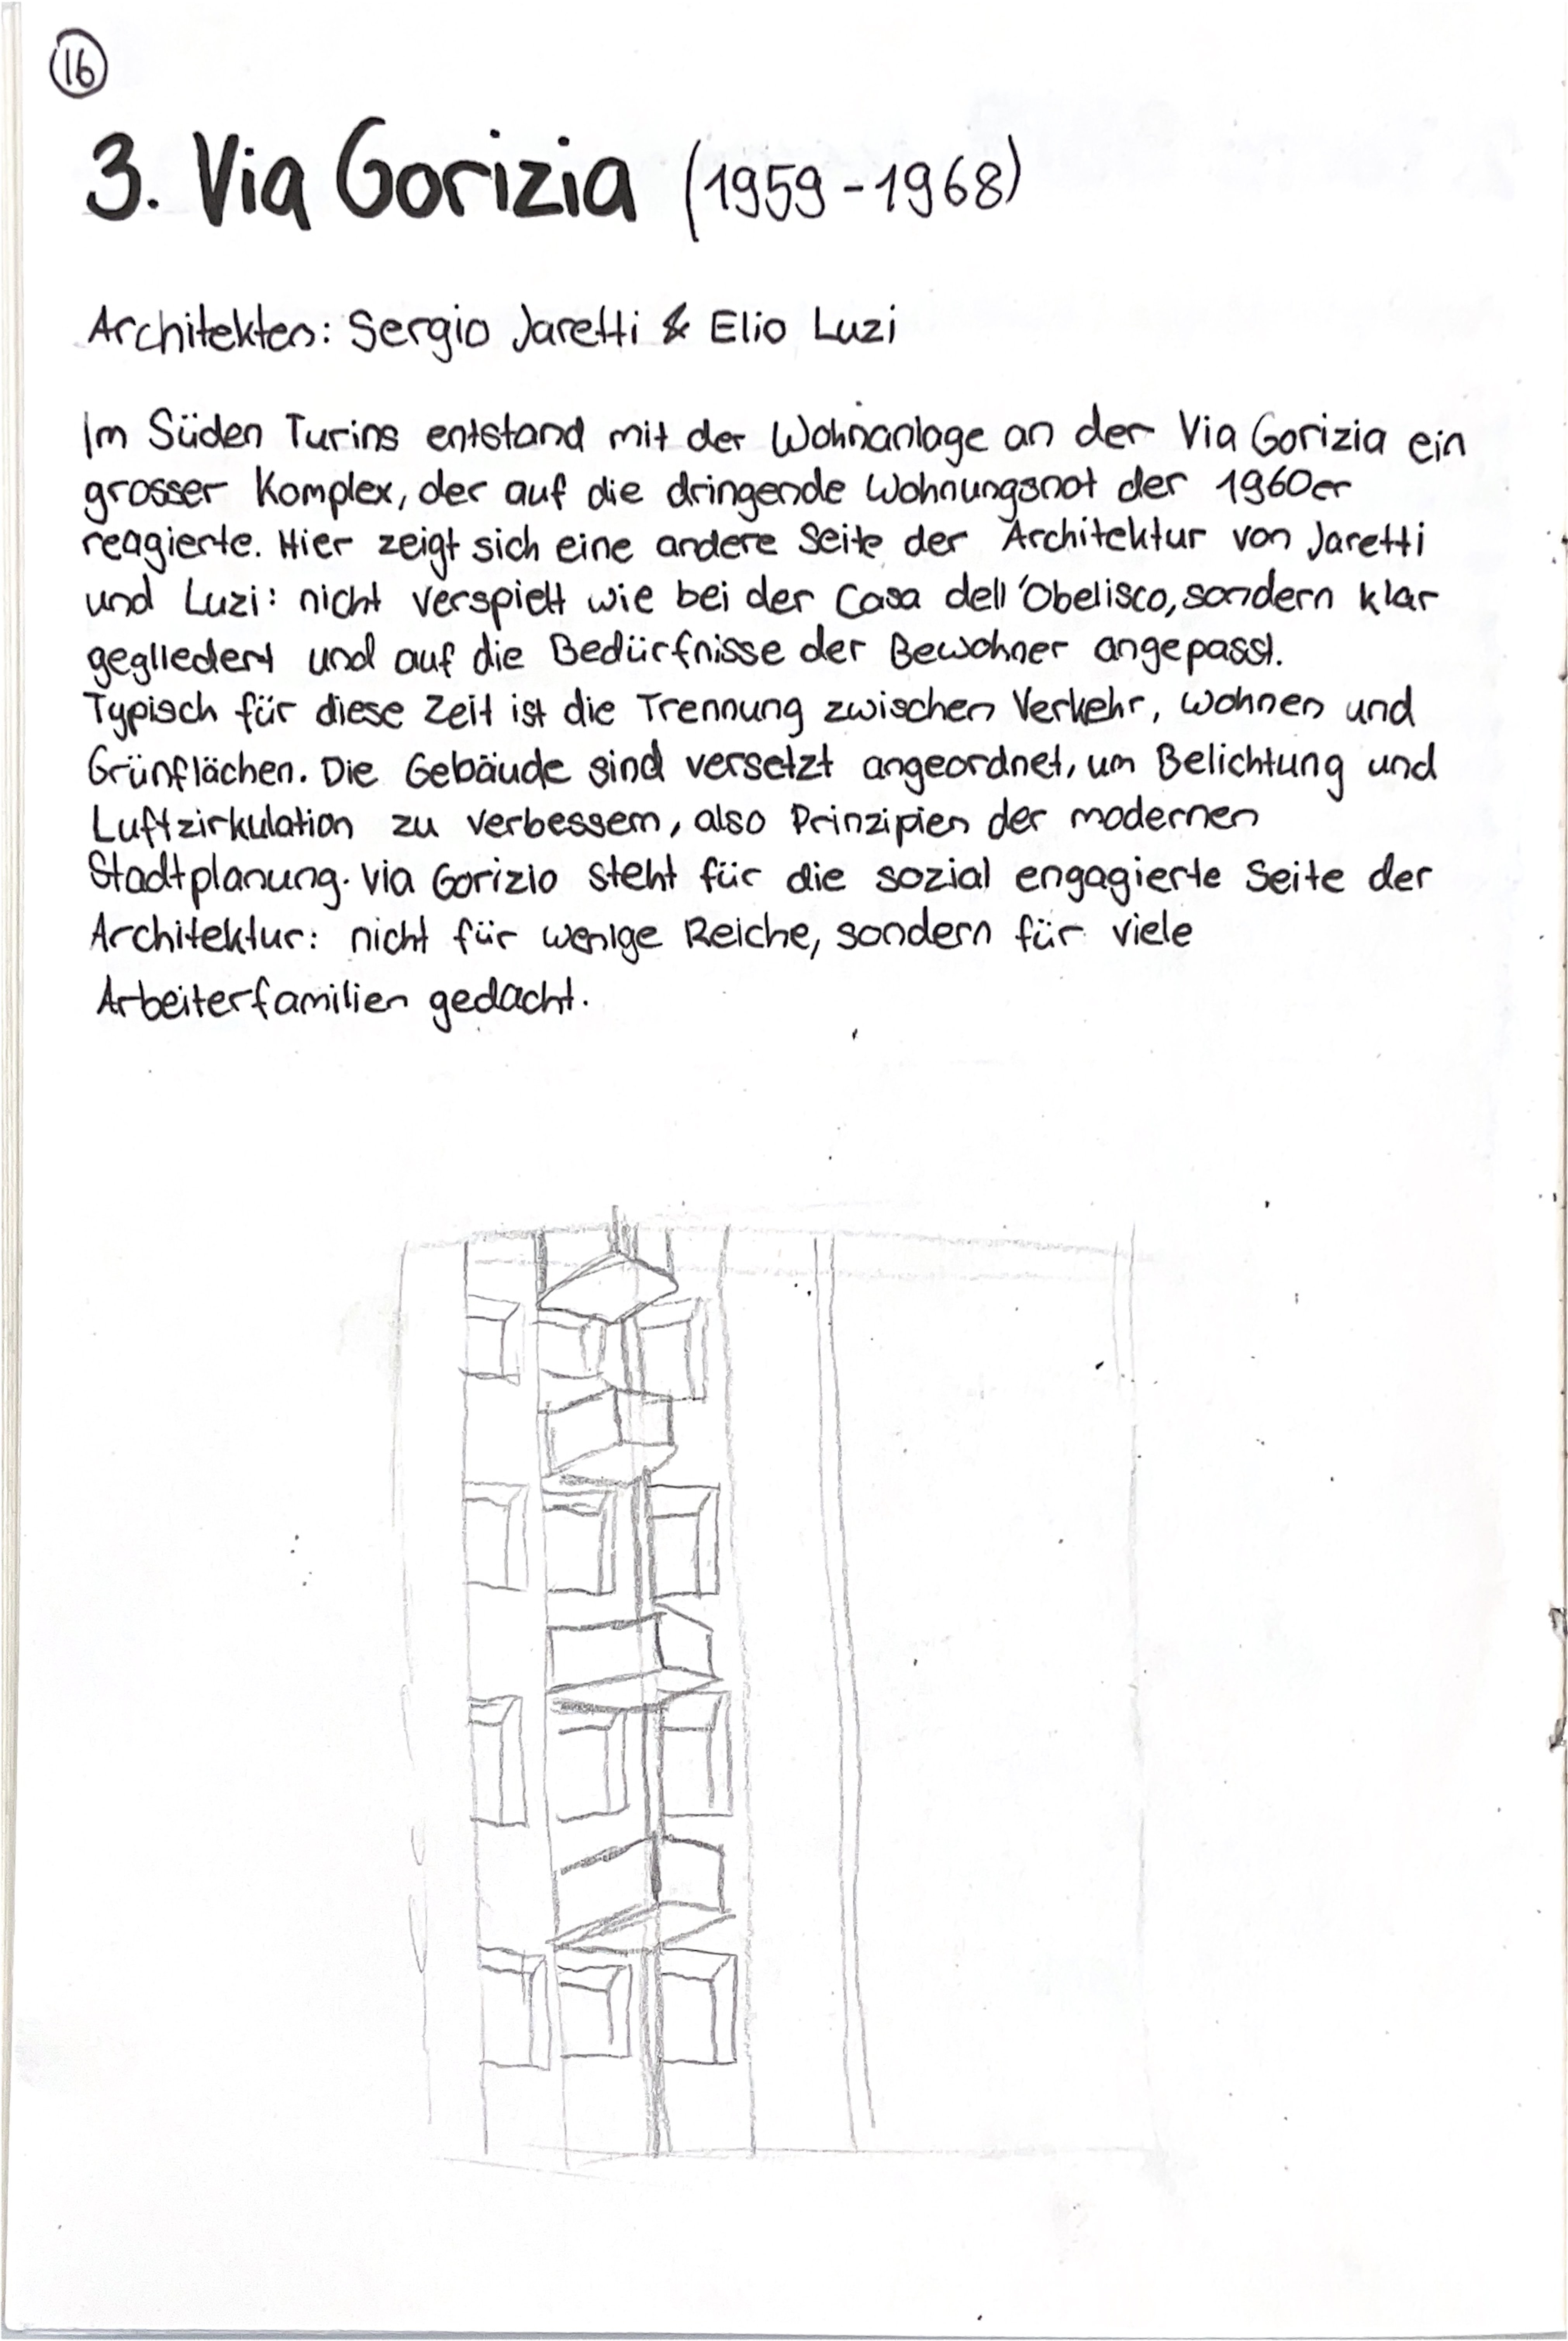 16
3. Via Gorizia (1959-1968)
Architekten: Sergio Jaretti & Elio Luzi
Im Süden Turins entstand mit der Wohnanlage an der Via Gorizia ein
grosser Komplex, der auf die dringende Wohnungsnot der 1960er
reagierte. Hier zeigt sich eine andere Seite der Architektur von Jaretti
und Luzi: nicht verspielt wie bei der Casa dell'Obelisco, sondern klar
gegliedert und auf die Bedürfnisse der Bewohner angepasst.
Typisch für diese Zeit ist die Trennung zwischen Verkehr, Wohnen und
Grünflächen. Die Gebäude sind versetzt angeordnet, um Belichtung und
Luftzirkulation zu verbessern, also Prinzipien der modernen
Stadtplanung. Via Gorizio steht für die sozial engagierte Seite der
Architektur: nicht für wenige Reiche, sondern für viele
Arbeiterfamilien gedacht.